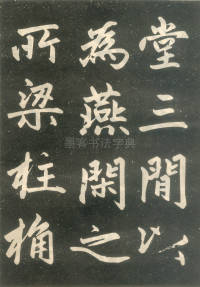 堂三間以
為燕閑之
所梁柱桷
墨客书法字典